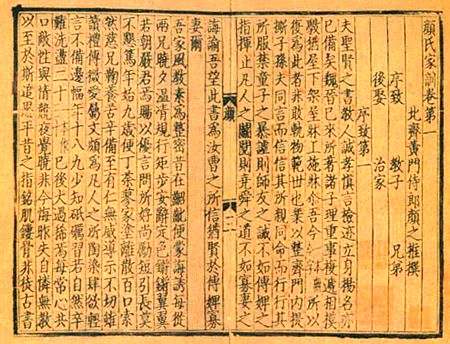 顏氏家訓卷第一
北齊黃門侍郎顏之推撰
序致 教子 兄弟
後娶 治家
序致第一
夫聖賢之書教人誠孝慎言檢迹立身揚名亦
已備矣魏晉已來所著諸子理重事複遞相模
斆猶屋下架屋牀上施牀爾吾今所以
復為此者非敢軌物範世也業以整齊門內提
撕子孫夫同言而信信其所親同命而行行其
所服禁童子之暴謔則師友之誡不如傅婢之
指揮止凡人之鬬鬩則堯舜之道不如寡妻之
顏
誨諭吾望此書為汝曹之所信猶賢於傅婢寡
妻爾
吾家風教素為整密昔在齠齔便蒙誨誘每從
兩兄曉夕溫凊規行矩步安辭定色鏘鏘翼翼
若朝嚴君焉賜以優言問所好尚勵短引長莫
不懇篤年始九歲便丁荼蓼家塗離散百口索
然慈兄鞠養苦辛備至有仁無威導示不切雖
讀禮傳微愛屬文頗為凡人之所陶染肆欲輕
言不備邊幅年十八九少知砥礪習若自然卒
難洗盪二十已後大過稀焉每常心共
口敵性與情競夜覺曉非今悔昨失自憐無教
以至於斯追思平昔之指銘肌鏤骨非徒古書